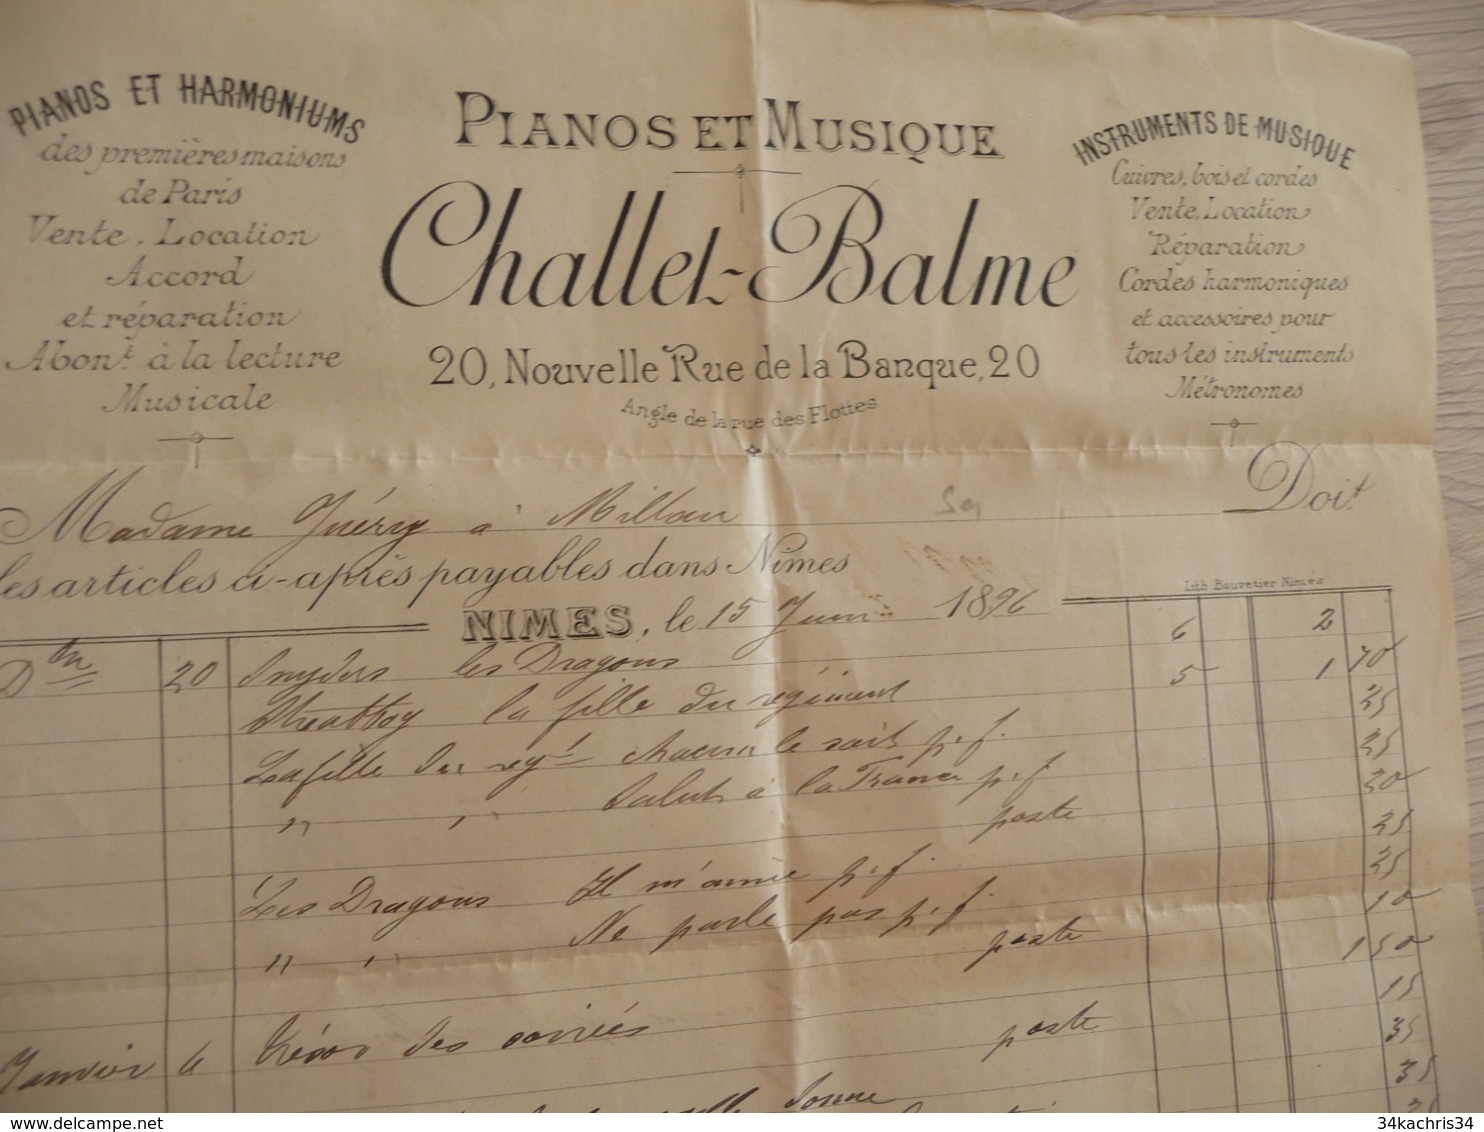 PIANOS ET HARMONIUMS
des premières maisons
de Paris
Vente, Location
Accord
et réparation
Abont à la lecture
Musicale
PIANOS ET MUSIQUE
Challet-Balme
20, Nouvelle Rue de la Banque, 20
Angle de la rue des Flottes
INSTRUMENTS DE MUSIQUE
Cuivres, bois et cordes
Vente, Location
Réparation
Cordes harmoniques
et accessoires pour
tous les instruments
Métronomes
Madame Guéry à Millau Doit
les articles ci-après payables dans Nimes
Lith Bouvetier Nimes
NIMES, le 15 Juin 1896
Dbre 20 Snyders les Dragons 6 2
la fille du régiment 5 1 70
La fille du regt chacun le sait p.f. 25
" " Salut à la France p.f 25
poste 20
Les Dragons Il m'aime p.f. 25
" " Ne parle pas p.f. 25
poste 10
Janvier 4 Trésor des soirées 1 50
poste 15
35
35
34kachris34